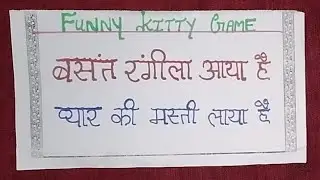 FUNNY KITTY GAME
बसंत रंगीला आया है
प्यार की मस्ती लाया है